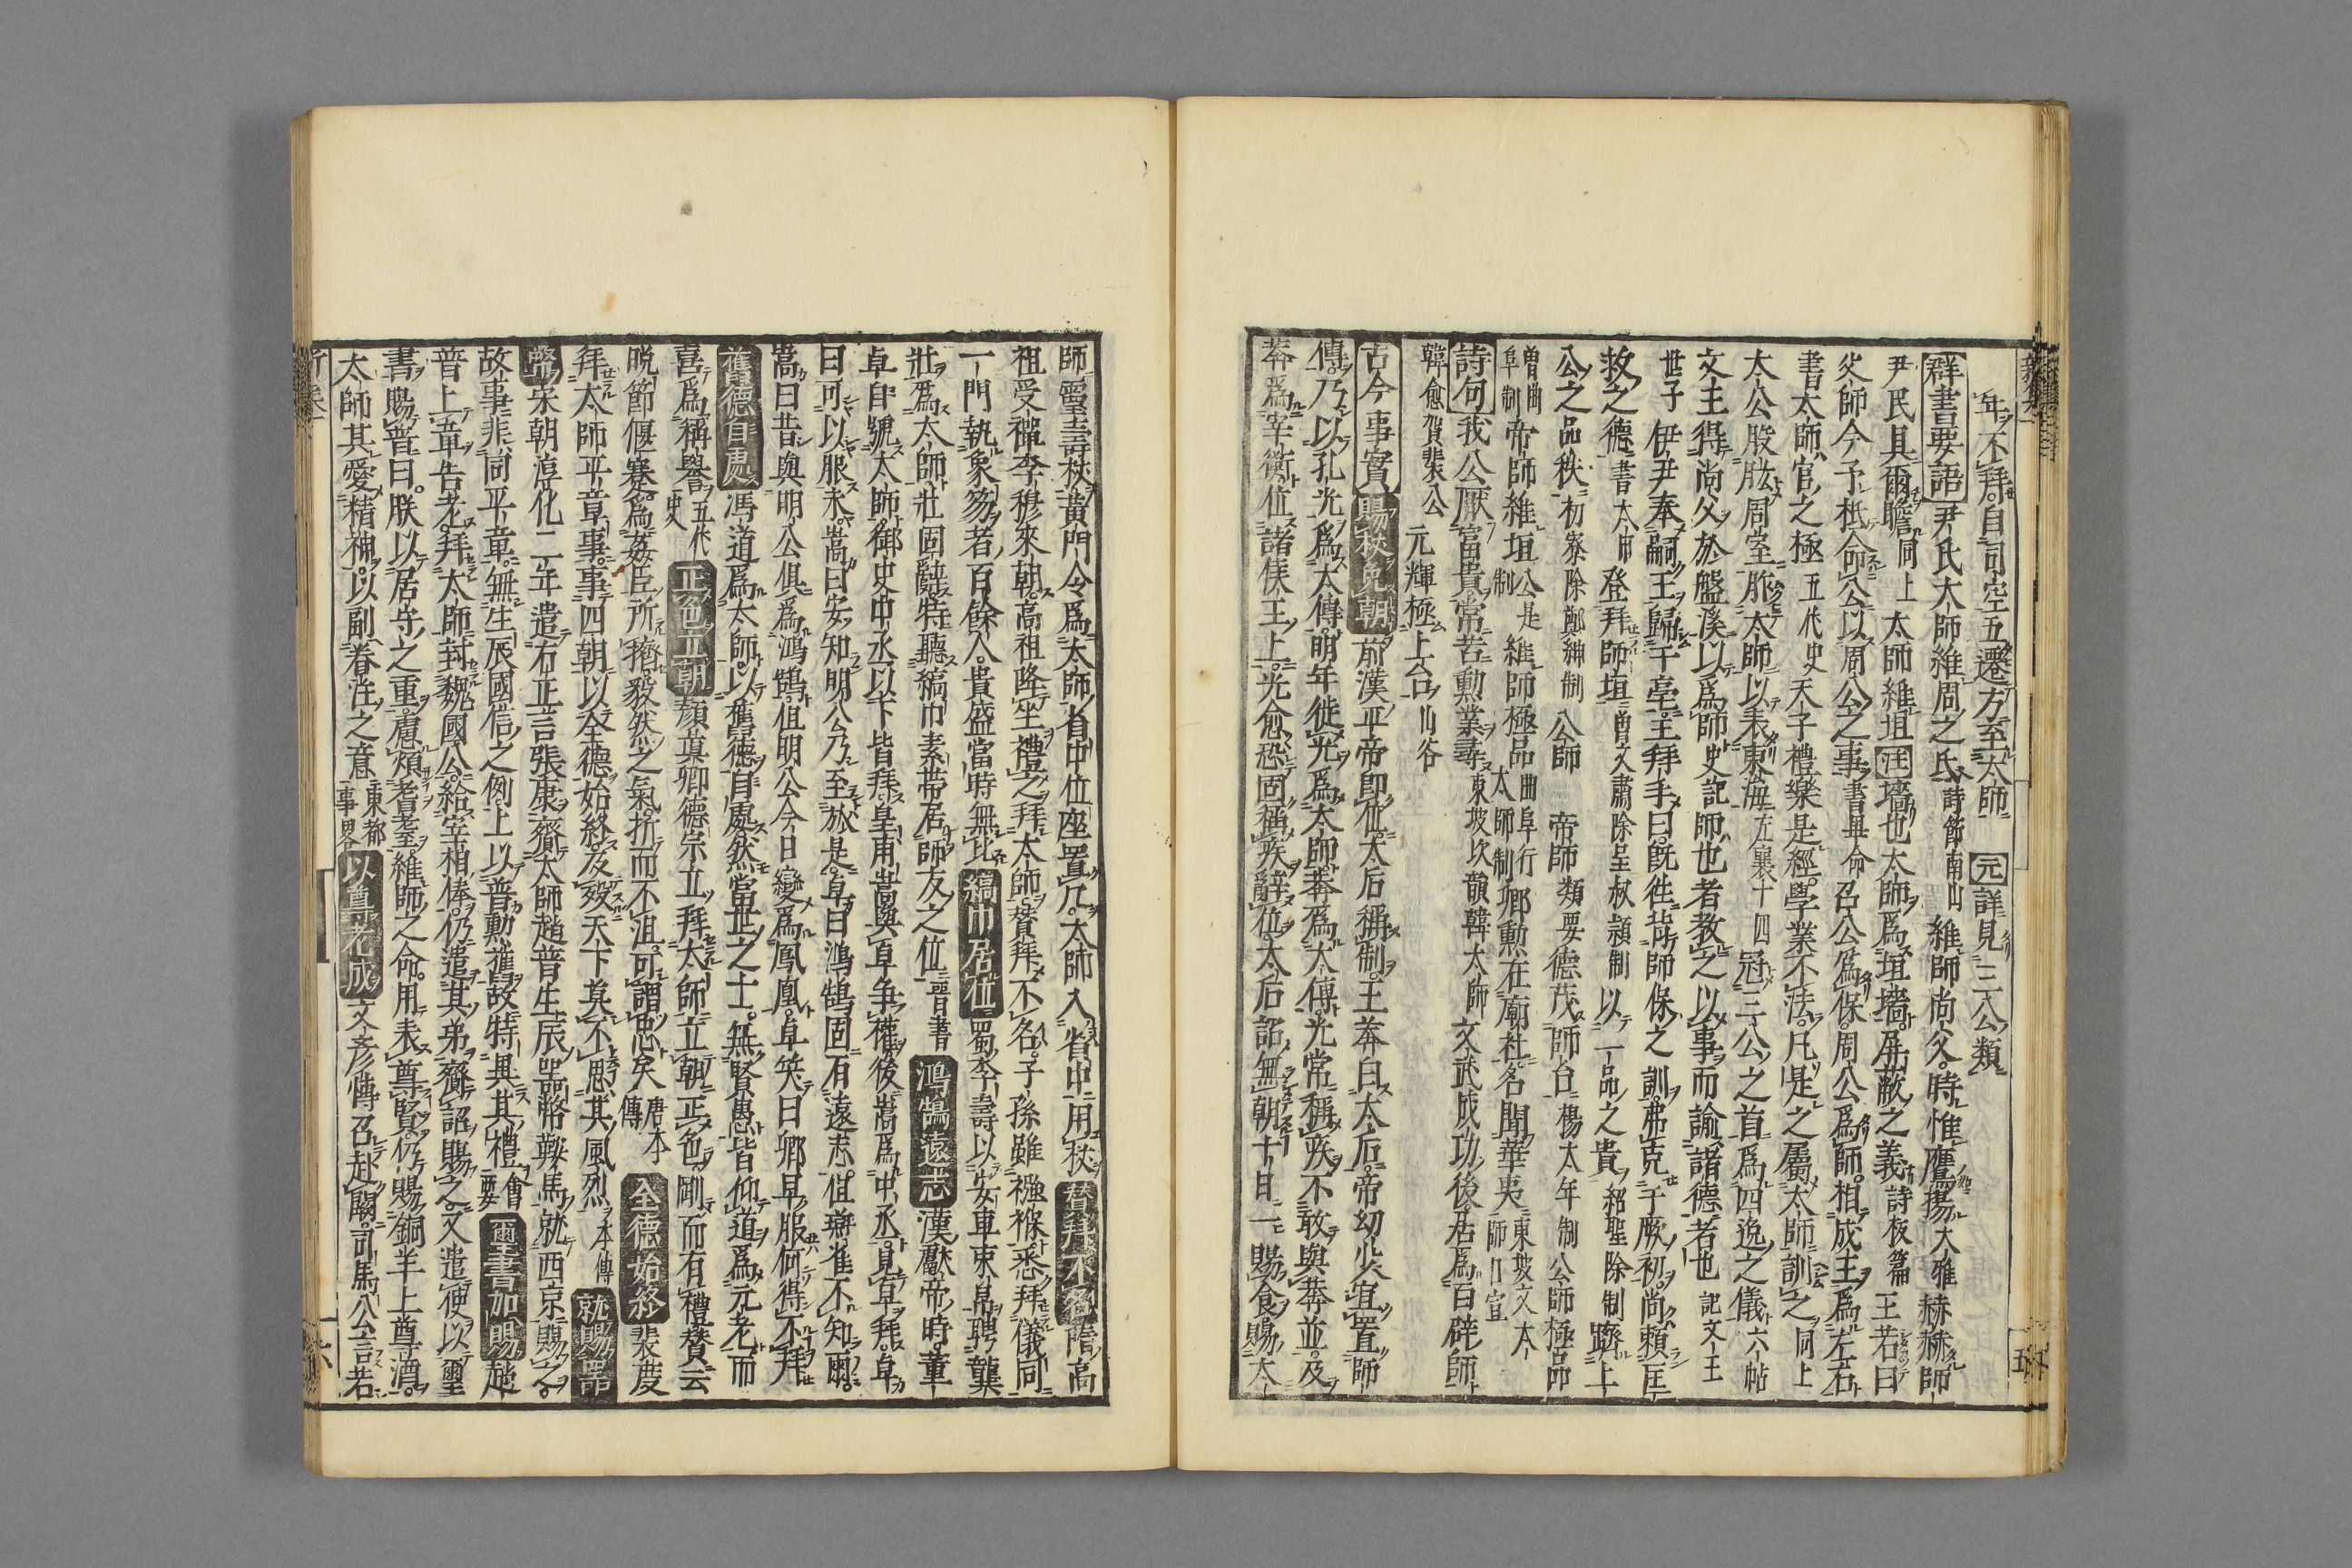 年不拜自司空五遷方至太師 元詳見三公類
群書要語尹氏太師維周之氏詩節南山維師尚父時惟鷹揚大雅赫赫師
尹民具爾瞻同上太師維垣注墻也太師爲垣墻屏蔽之義詩板篇王若曰
父師今予祗命公以周公之事書畢命召公爲保周公爲師相成王爲左右
書太師官之極五代史天子禮樂是經學業不法凡是之屬太師訓之同上
太公股肱周室胙太師以表東海左襄十四冠三公之首爲四逸之儀六帖
文王得尚父於盤溪以爲師史記師也者教之以事而諭諸德者也記文王
世子伊尹奉嗣王歸于亳王拜手曰旣徃背師保之訓弗克于厥初尚賴匡
救之德書太甲登拜師垣曽文肅除呈制以一品之貴紹聖除制躋上
公之品秩初寮除鄭紳制公師 帝師類要德茂師台楊太年制公師極品
曽曲阜制帝師維垣公是制維師極品曲阜行太師制鄕勲在廟社名聞華夷東坡文太師口宣
詩句我公厭富貴常苦勲業尋東坡次韻韓太師文武成功後居爲百辟師
韓愈賀裴公元輝極上台山谷
古今事實賜秩免朝前漢平帝即位太后稱制王莽白太后帝幼少宜置師
傅乃以孔光爲太傅明年徙光爲太師莽爲太傅光常稱疾不敢與莽並及
莽爲宰衡位諸侯王上光愈恐固稱疾辭位太后詔無朝十日一賜食賜太
師靈壽杖黄門令爲太師省中位座置几太師入省中用杖賛拜不名隋高
祖受禪李穆來朝高祖降坐禮之拜太師賛拜不名子孫雖襁褓悉拜儀同
一門執象笏者百餘人貴盛當時無比縞巾居位蜀李壽以安車束帛聘龔
壯爲太師壯固辭特聽縞巾素帶居師友之位晉書鴻鵠遠志漢獻帝時董
卓自號太師御史中丞以下皆拜皇甫嵩與卓争權後嵩爲中丞見卓拜卓
曰可以服未嵩曰安知明公乃至於是卓曰鴻鵠固有遠志但燕雀不知爾
嵩曰昔與明公俱爲鴻鵠但明公今日變爲鳳凰卓笑曰卿早服何得不拜
舊德自處馮道爲太師以舊德自處然當世之士無賢愚皆仰道爲元老而
喜爲稱譽五代史正色立朝顔眞卿德宗立拜太師立朝正色剛而有禮賛云
晩節偃蹇爲姦臣所擠毅然之氣折而不沮可謂忠矣唐本傳全德始終裴度
拜太師平章事事四朝以全德始終及殁天下莫不思其風烈本傳就賜器
幣宋朝淳化二年遣右正言張康齎太師趙普生辰器幣鞍馬就西京賜之
故事非同平章無生辰國信之例上以普勲舊故特異其禮會要璽書加賜趙
普上章告老拜太師封魏國公給宰相俸仍遣其弟齎詔賜之又遣使以璽
書賜普曰朕以居守之重慮煩耆耋維師之命用表尊賢仍賜銅羊上尊酒
太師其愛精神以副眷注之意東都事畧以尊老成文彦博召赴闕司馬公言若